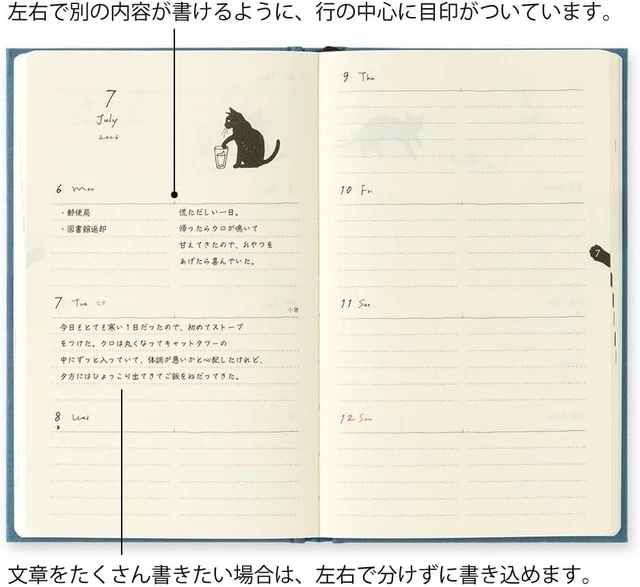 左右で別の内容が書けるように、行の中心に目印がついています。
7
July
2026
6 Mon
・郵便局
・図書館返却
慌ただしい一日。
帰ったらクロが鳴いて
甘えてきたので、おやつを
あげたら喜んでいた。
7 Tue 七夕
小暑
今日もとても寒い1日だったので、初めてストーブ
をつけた。クロは丸くなってキャットタワーの
中にずっと入っていて、体調が悪いかと心配したけれど、
夕方にはひょっこり出てきてご飯をねだってきた。
8 Wed
9 Thu
10 Fri
11 Sat
12 Sun
7
文章をたくさん書きたい場合は、左右で分けずに書き込めます。